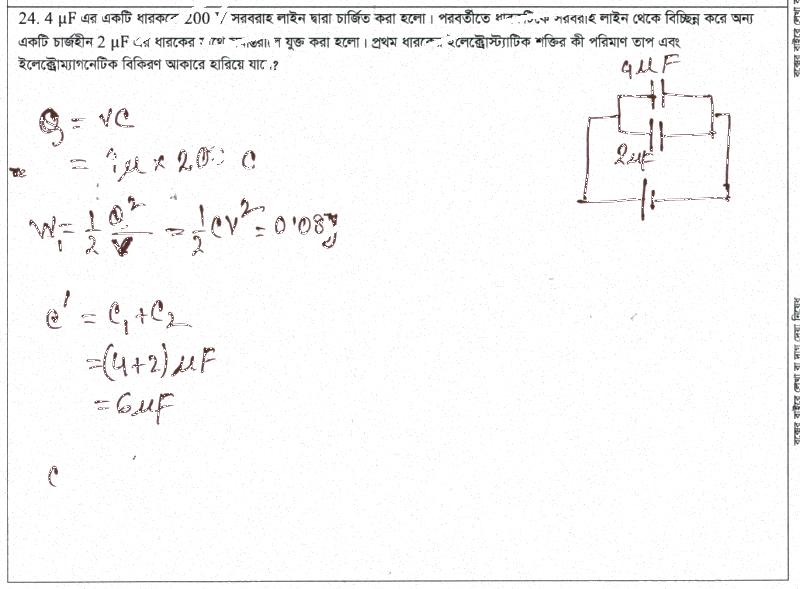 24. 4 μF এর একটি ধারককে 200 V সরবরাহ লাইন দ্বারা চার্জিত করা হলো। পরবর্তীতে সরবরাহ লাইন থেকে বিচ্ছিন্ন করে অন্য
একটি চার্জহীন 2 μF এর ধারকের সাথে যুক্ত করা হলো। প্রথম ধারকের ইলেক্ট্রোস্ট্যাটিক শক্তির কী পরিমাণ তাপ এবং
ইলেক্ট্রোম্যাগনেটিক বিকিরণ আকারে হারিয়ে যাবে?
4μF
2μF
Q = VC
= 4μ × 200 C
W₁ = 1/2 Q²/V = 1/2 CV² = 0.08 J
C' = C₁ + C₂
= (4+2) μF
= 6μF
C